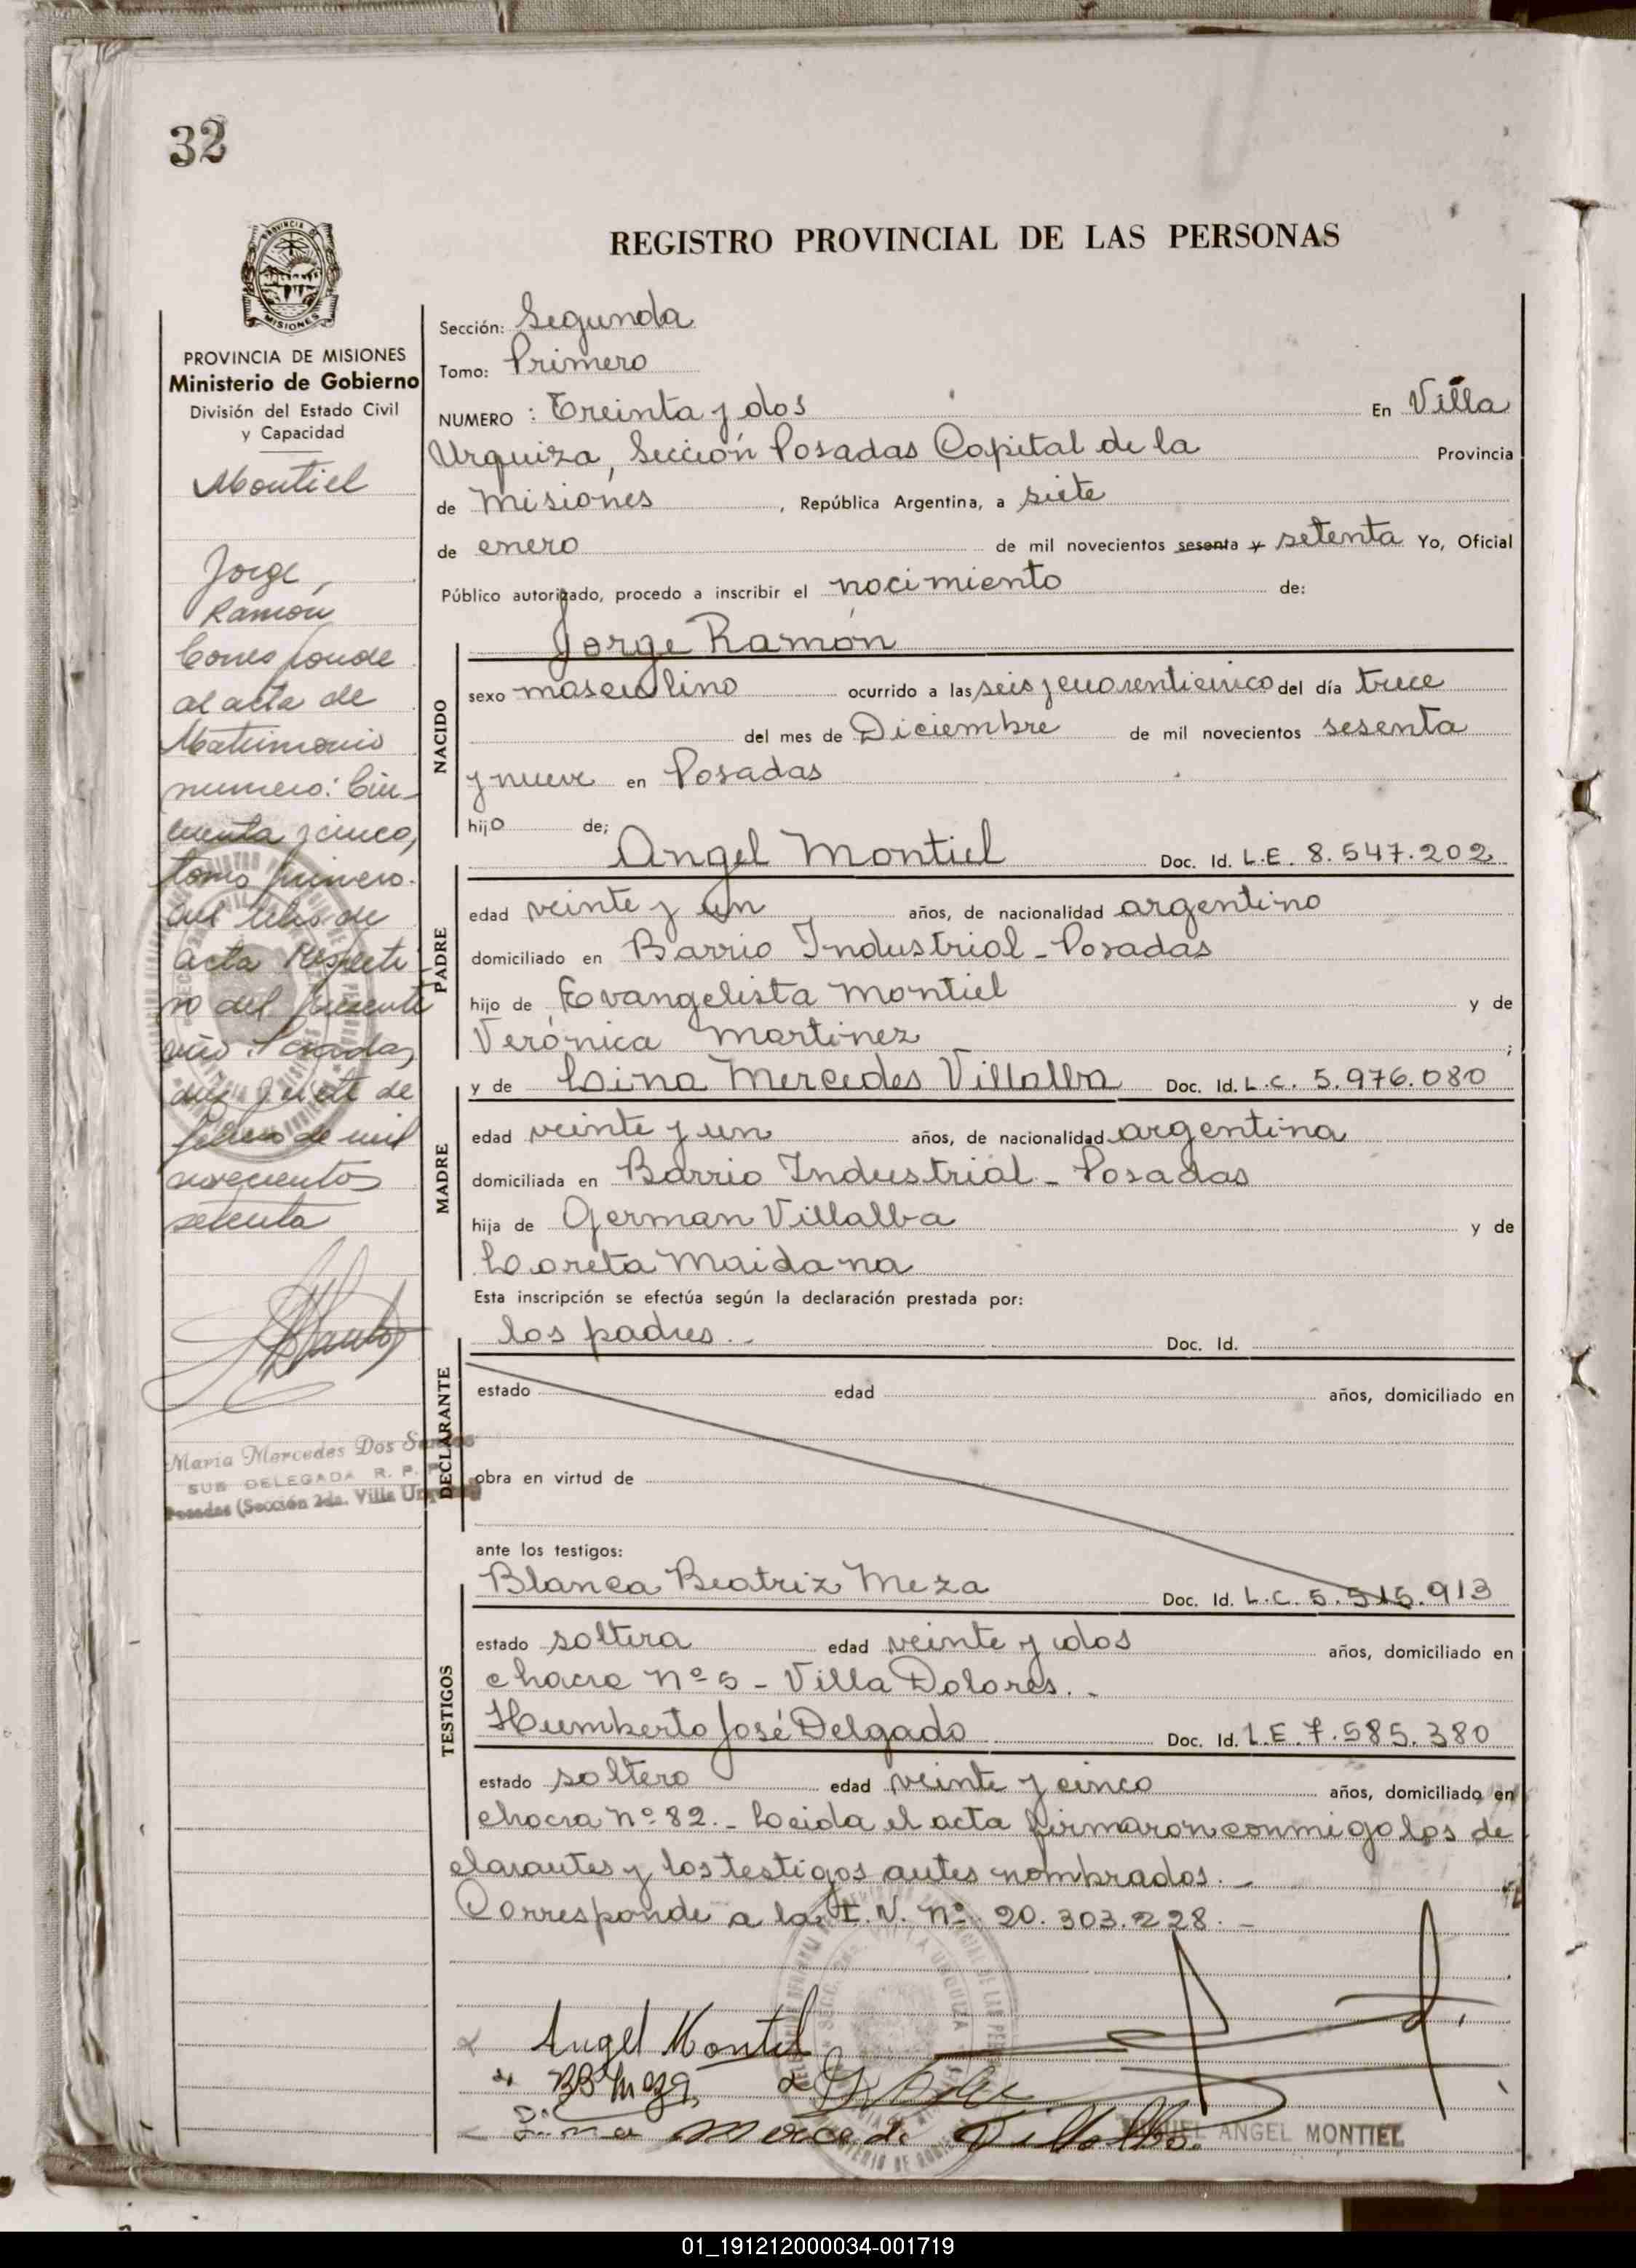 32
PROVINCIA DE MISIONES
REGISTRO PROVINCIAL DE LAS PERSONAS
PROVINCIA DE MISIONES
Ministerio de Gobierno
División del Estado Civil
y Capacidad
Montiel
Jorge,
Ramón
Corresponde
al acta de
Matrimonio
numero: Cin-
cuenta y cinco,
tomo primero.
del libro de
acta respecti
vo del presente
año. Posadas,
diez y siete de
febrero de mil
novecientos
setenta
Maria Mercedes Dos Santos
SUB DELEGADA R. P. P.
Posadas (Sección 2da. Villa Urquiza)
Sección: Segunda
Tomo: Primero
NUMERO : Treinta y dos En Villa
Urquiza, Sección Posadas Capital de la Provincia
de Misiones, República Argentina, a siete
de enero de mil novecientos sesenta y setenta Yo, Oficial
Público autorizado, procedo a inscribir el nacimiento de:
Jorge Ramón
NACIDO
sexo masculino ocurrido a las seis y cuarenticinco del día trece
del mes de Diciembre de mil novecientos sesenta
y nueve en Posadas
hijo de;
PADRE
Angel Montiel Doc. Id. L.E. 8.547.202
edad veinte y un años, de nacionalidad argentino
domiciliado en Barrio Industrial - Posadas
hijo de Evangelista Montiel y de
Verónica Martinez ;
MADRE
y de Lina Mercedes Villalba Doc. Id. L.C. 5.976.080
edad veinte y un años, de nacionalidad argentina
domiciliada en Barrio Industrial - Posadas
hija de German Villalba y de
Loreta Maidana
Esta inscripción se efectúa según la declaración prestada por:
DECLARANTE
los padres.- Doc. Id.
estado edad años, domiciliado en
obra en virtud de
ante los testigos:
TESTIGOS
Blanca Beatriz Meza Doc. Id. L.C. 5.515.913
estado soltera edad veinte y dos años, domiciliado en
chacra Nº 5 - Villa Dolores.-
Humberto José Delgado Doc. Id. L.E. 7.585.380
estado soltero edad veinte y cinco años, domiciliado en
chacra nº 82.- Leida el acta firmaron conmigo los de
clarantes y los testigos antes nombrados.-
Corresponde a la I.N. Nº 20.303.228.-
Angel Montiel
BBMeza
Lina Mercede Villalba.
MIGUEL ANGEL MONTIEL
01_191212000034-001719